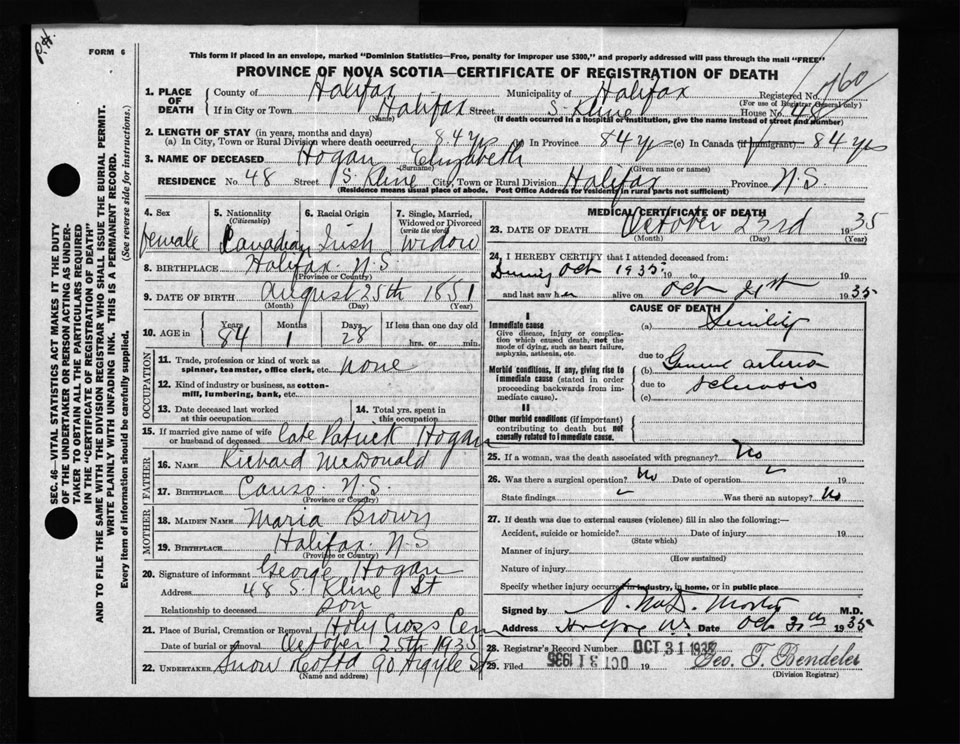 P.H.
FORM 6
This form if placed in an envelope, marked "Dominion Statistics—Free, penalty for improper use $300," and properly addressed will pass through the mail "FREE"
PROVINCE OF NOVA SCOTIA—CERTIFICATE OF REGISTRATION OF DEATH
1. PLACE OF DEATH County of Halifax Municipality of Halifax Registered No. 760
(For use of Registrar General only)
If in City or Town Halifax Street S. Kline House No. 48
(Name) (If death occurred in a hospital or institution, give the name instead of street and number)
2. LENGTH OF STAY (in years, months and days)
(a) In City, Town or Rural Division where death occurred 84 ys (b) In Province 84 ys (c) In Canada (if immigrant) 84 ys
3. NAME OF DECEASED Hogan Elizabeth
(Surname) (Given name or names)
RESIDENCE No. 48 Street S. Kline City, Town or Rural Division Halifax Province N.S.
(Residence means usual place of abode. Post Office Address for residents in rural parts not sufficient)
4. Sex female
5. Nationality (Citizenship) Canadian
6. Racial Origin Irish
7. Single, Married, Widowed or Divorced (write the word) Widow
8. BIRTHPLACE Halifax. N.S
(Province or Country)
9. DATE OF BIRTH August 25th 1851
(Month) (Day) (Year)
10. AGE in Years 84 Months 1 Days 28 If less than one day old hrs. or min.
OCCUPATION
11. Trade, profession or kind of work as spinner, teamster, office clerk, etc. none
12. Kind of industry or business, as cotton-mill, lumbering, bank, etc.
13. Date deceased last worked at this occupation
14. Total yrs. spent in this occupation
15. If married give name of wife or husband of deceased Late Patrick Hogan
FATHER
16. NAME Richard McDonald
17. BIRTHPLACE Canso. N.S.
(Province or Country)
MOTHER
18. MAIDEN NAME Maria Brown
19. BIRTHPLACE Halifax. N.S
(Province or Country)
20. Signature of informant George Hogan
Address 48 S. Kline St
Relationship to deceased son
21. Place of Burial, Cremation or Removal Holy Cross Cem
Date of burial or removal October 25th 1935
22. UNDERTAKER Snow & Co Ltd 90 Argyle St
(Name and address)
MEDICAL CERTIFICATE OF DEATH
23. DATE OF DEATH October 23rd 1935
(Month) (Day) (Year)
24. I HEREBY CERTIFY that I attended deceased from:
During Oct 1935 19 to 19
and last saw her alive on Oct 21st 1935
CAUSE OF DEATH
I
Immediate cause
Give disease, injury or complication which caused death, not the mode of dying, such as heart failure, asphyxia, asthenia, etc.
(a) Senility
due to
Morbid conditions, if any, giving rise to immediate cause (stated in order proceeding backwards from immediate cause).
(b) General arterio
due to sclerosis
(c)
II
Other morbid conditions (if important) contributing to death but not causally related to immediate cause.
25. If a woman, was the death associated with pregnancy? No
26. Was there a surgical operation? No Date of operation 19
State findings Was there an autopsy? No
27. If death was due to external causes (violence) fill in also the following:—
Accident, suicide or homicide? Date of injury 19
(State which)
Manner of injury
(How sustained)
Nature of injury
Specify whether injury occurred in industry, in home, or in public place
Signed by M.D.
Address N.S. Date Oct 1935
28. Registrar's Record Number OCT 31 1935
29. Filed OCT 31 1935 19 Geo. T. Bendeler
(Division Registrar)
SEC. 46—VITAL STATISTICS ACT MAKES IT THE DUTY
OF THE UNDERTAKER OR PERSON ACTING AS UNDER-
TAKER TO OBTAIN ALL THE PARTICULARS REQUIRED
IN THE "CERTIFICATE OF REGISTRATION OF DEATH"
AND TO FILE THE SAME WITH THE DIVISION REGISTRAR WHO SHALL ISSUE THE BURIAL PERMIT.
WRITE PLAINLY WITH UNFADING INK. THIS IS A PERMANENT RECORD.
Every item of information should be carefully supplied. (See reverse side for instructions.)